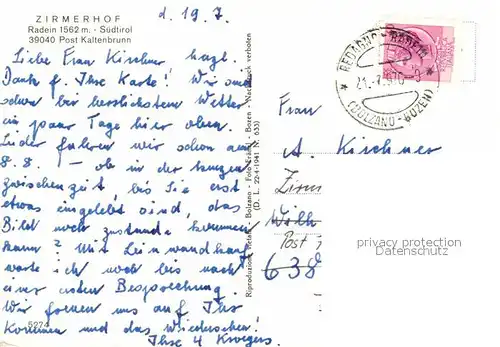 ZIRMERHOF
Radein 1562 m. - Südtirol
39040 Post Kaltenbrunn
d. 19.7.
Liebe Frau Kirchner hzgl.
Dank f. Ihre Karte! Wir sind
schon bei herrlichstem Wetter
ein paar Tage hier oben.
Leider fahren wir schon am
8.8. – ob in der kurzen
zwischenzeit, bis Sie erst
etwas eingelebt sind, das
Bild noch zustande kommen
kann? Mit Leinwandkauf
warte ich noch bis nach
einer ersten Besprechung.
Wir freuen uns auf Ihr
Kommen und das Wiedersehen!
Ihre 4 Kroegers
5274
Riproduzione vietata - Bolzano - Foto - Bozen - Nachdruck verboten
(D. L. 22-4-1941 N. 633)
REDAGNO - RADEIN
(BOLZANO - BOZEN)
Frau
A. Kirchner
Wilh
Post
638
privacy protection
Datenschutz